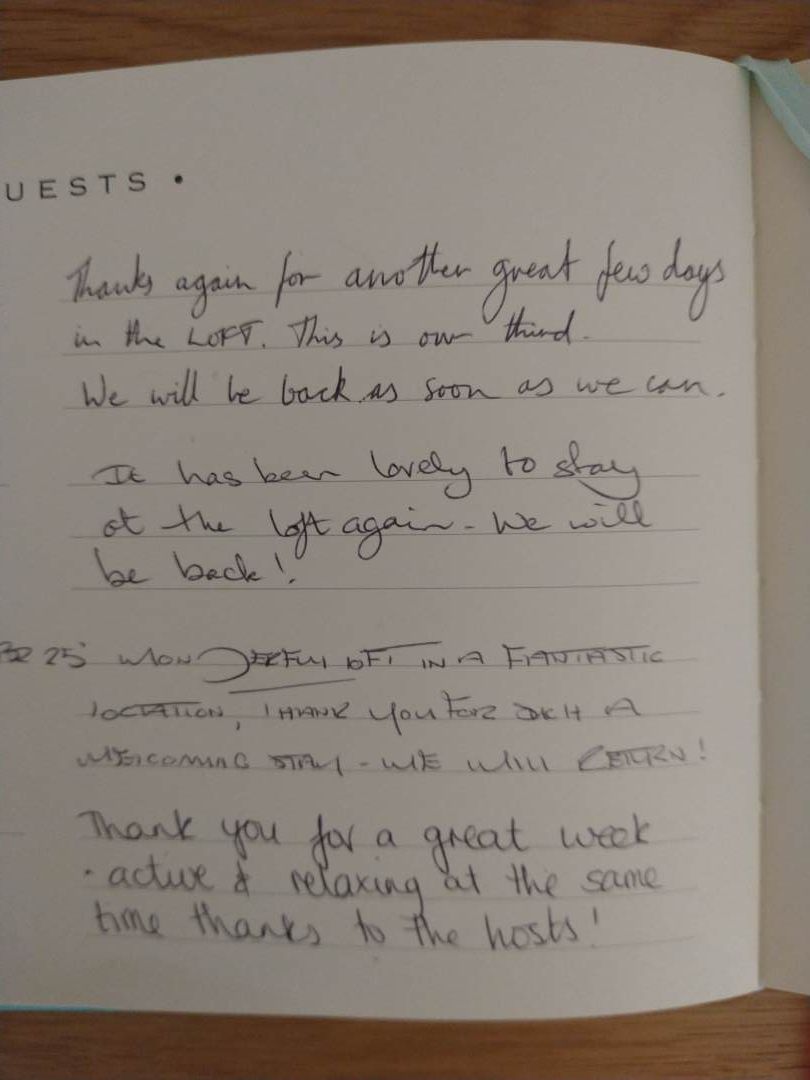 UESTS •
Thanks again for another great few days
in the LOFT. This is our third.
We will be back as soon as we can.
It has been lovely to stay
at the loft again - We will
be back!
25' WONDERFUL LOFT IN A FANTASTIC
LOCATION, THANK YOU FOR SUCH A
WELCOMING STAY - WE WILL RETURN!
Thank you for a great week
- active & relaxing at the same
time thanks to the hosts!